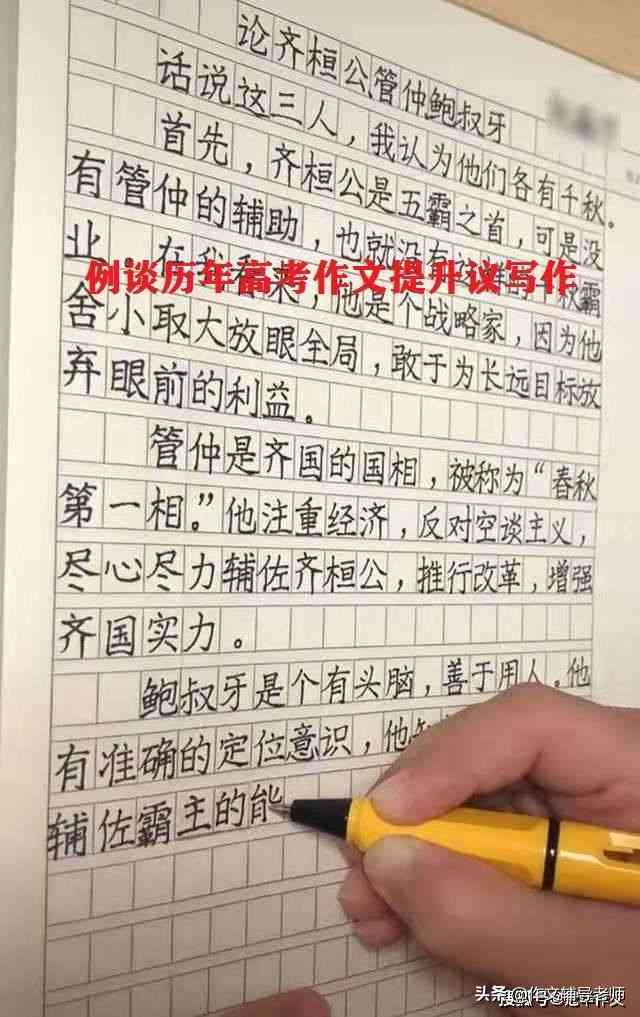 论齐桓公管仲鲍叔牙
话说这三人，我认为他们各有千秋。
首先，齐桓公是五霸之首，可是没
有管仲的辅助，也就没有
霸
例谈历年高考作文提升议写作
业。在我看来，他是个战略家，因为他
舍小取大放眼全局，敢于为长远目标放
弃眼前的利益。
管仲是齐国的国相，被称为“春秋
第一相。”他注重经济，反对空谈主义，
尽心尽力辅佐齐桓公，推行改革，增强
齐国实力。
鲍叔牙是个有头脑，善于用人。他
有准确的定位意识，他
辅佐霸主的能
头条@作文辅导老师
搜狐号@